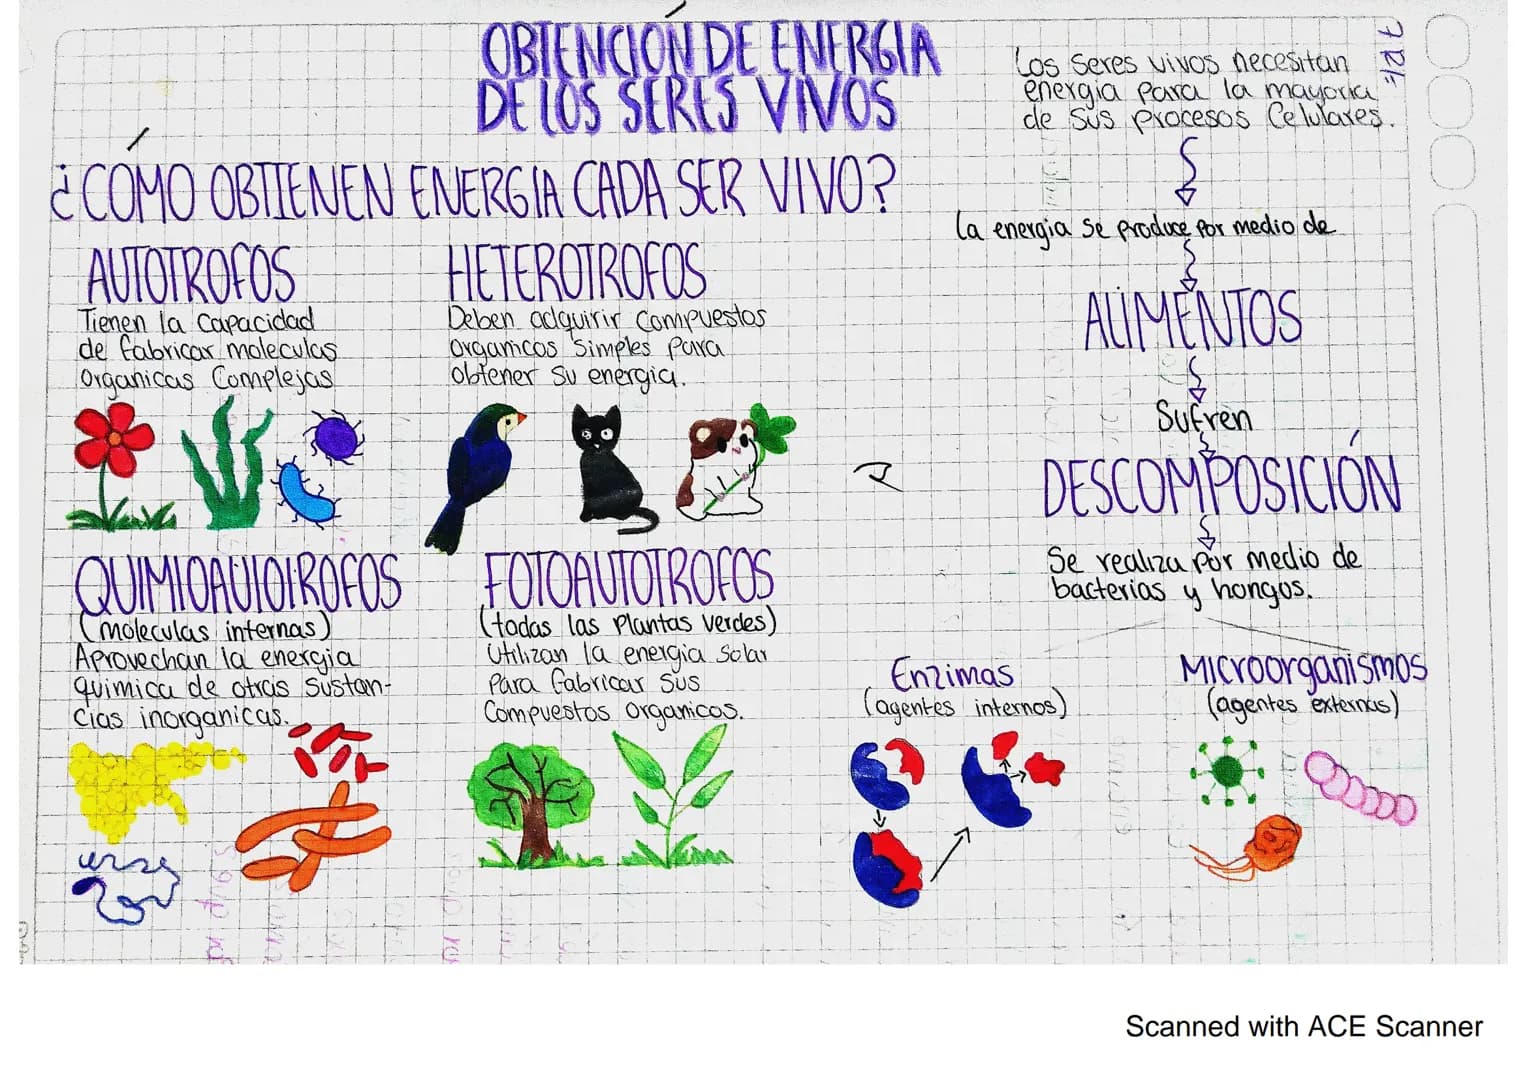 OBTENCIÓN DE ENERGIA
DE LOS SERES VIVOS
¿CÓMO OBTIENEN ENERGIA CADA SER VIVO?
AUTOTROFOS
Tienen la Capacidad
de fabricar moleculas
Organicas Complejas
HETEROTROFOS
Deben adquirir Compuestos
Organicos Simples Para
Obtener Su energia.
QUIMIOAUTOTROFOS
(moleculas internas)
Aprovechan la energia
quimica de otras Sustan-
cias inorganicas.
FOTOAUTOTROFOS
(todas las Plantas Verdes)
Utilizan la energia Solar
Para fabricar Sus
Compuestos Organicos.
Los Seres vivos necesitan
energia Para la mayoria
de Sus Procesos Celulares.
La energia Se Produce Por medio de
ALIMENTOS
Sufren
DESCOMPOSICIÓN
Se realiza Por medio de
bacterias y hongos.
Enzimas
(agentes internos)
Microorganismos
(agentes externos)
Scanned with ACE Scanner